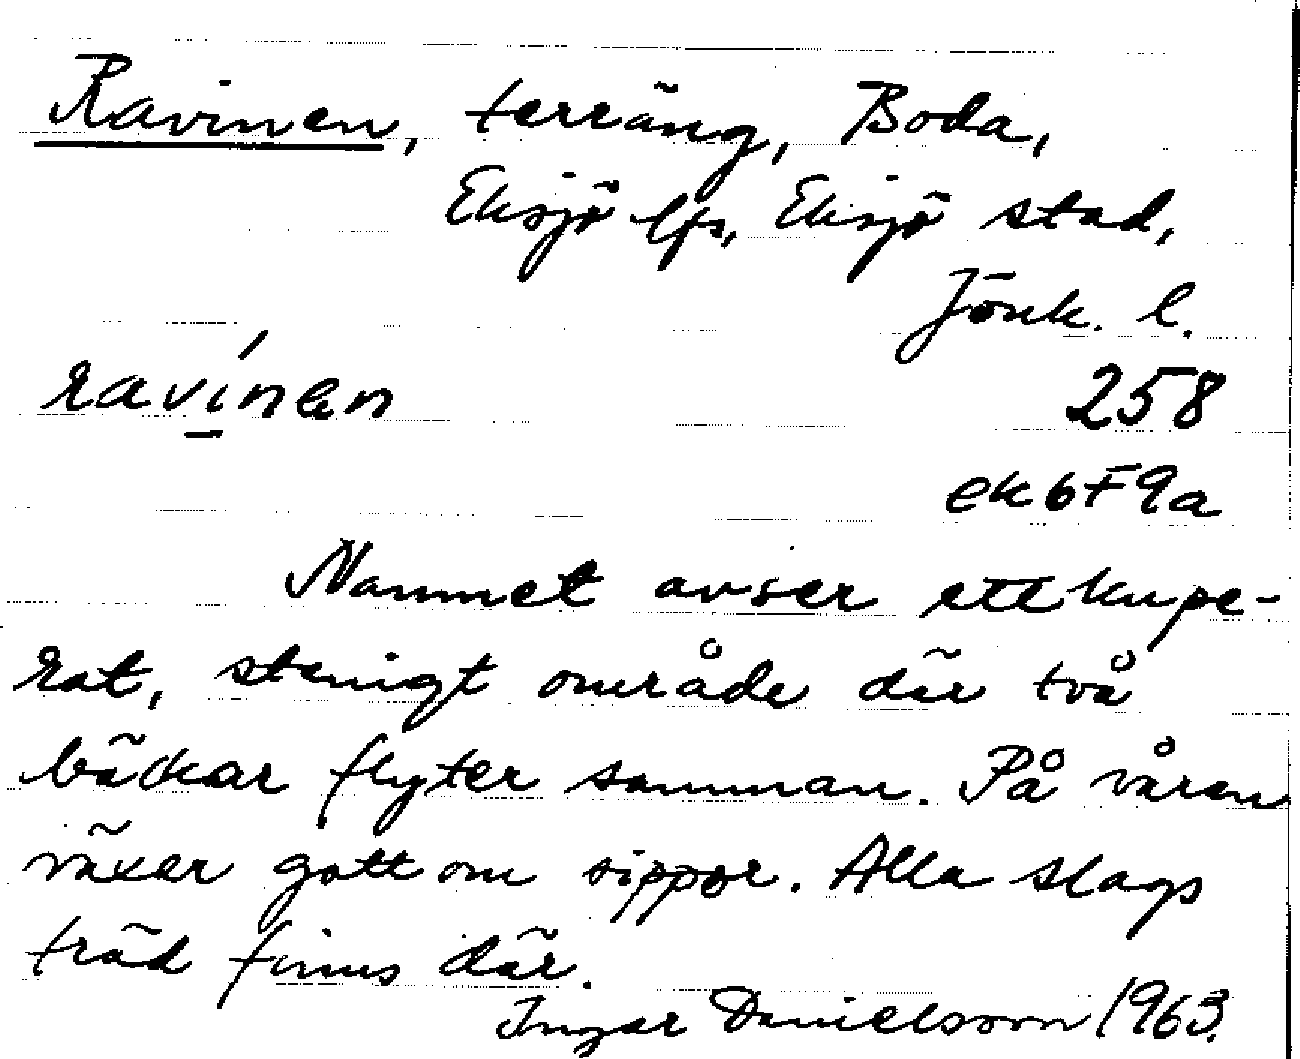 Ravinen, terräng, Boda,
Eksjö lfs, Eksjö stad,
Jönk. l.
ravínen
258
ek 6F9a
Namnet avser ett kupe-
rat, stenigt område där två
bäckar flyter samman. På våren
växer gott om sippor. Alla slags
träd finns där.
Ingar Danielsson 1963.